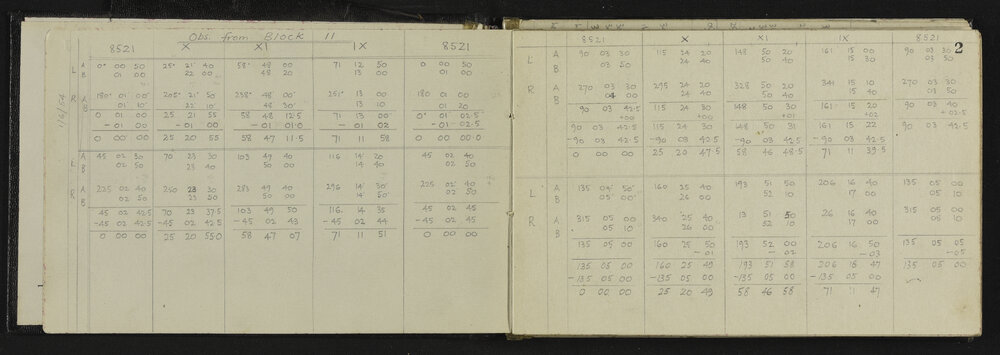 Obs. from Block 11
8521 X XI IX 8521
1/6/54
L A 0° 00 50 25° 21' 40 58° 48 00 71 12 50 0 00 50
B 01 00 22 00 48 20 13 00 01 00
R A 180° 01 00 205° 21' 50 238° 48' 00" 251° 13 00 180 01 00
B 01 10 22' 10" 48 30' 13 10 01 20
0 01 00 25 21 55 58 48 12.5 71 13 00 0° 01 02.5
- 01 00 - 01 00 - 01 01.0 - 01 02 - 01 - 02.5
0 00 00 25 20 55 58 47 11.5 71 11 58 0 00 00.0
L A 45 02 30 70 23 30 103 49 40 116 14' 20 45 02 40
B 02 50 23 40 50 00 14 40 02 50
R A 225 02 40 250 23 30 283 49 40 296 14' 30" 225 02 40
B 02 50 23 50 50 00 14 40 02 50
45 02 42.5 70 23 37.5 103 49 50 116. 14 35 45 02 45
-45 02 42.5 -45 02 42.5 -45 02 43 -45 02 44 -45 02 45
0 00 00 25 20 55.0 58 47 07 71 11 51 0 00 00
2
8521 X XI IX
L A 90 03 30 115 24 20 148 50 20 161 15 00 90 03 30
B 03 50 24 40 50 40 15 30 03 50
R A 270 03 30 295 24 20 328 50 20 341 15 10 270 03 30
B 04 00 24 40 50 40 15 40 03 50
90 03 42.5 115 24 30 148 50 30 161 15 20 90 03 40
+00 +00 +01 +02 +02.5
90 03 42.5 115 24 30 148 50 31 161 15 22 90 03 42.5
-90 03 42.5 -90 03 42.5 -90 03 42.5 -90 03 42.5
0 00 00 25 20 47.5 58 46 48.5 71 11 39.5
L A 135 04' 50" 160 25 40 193 51 50 206 16 40 135 05 00
B 05' 00" 26 00 52 10 17 00 05 10
R A 315 05 00 340 25' 40 13 51 50 26 16 40 315 05 00
B 05 10 26 00 52 10 17 00 05 10
135 05 00 160 25 50 193 52 00 206 16 50 135 05 05
- 01 - 02 - 03 - 05
135 05 00 160 25 49 193 51 58 206 16 47 135 05 00
-135 05 00 -135 05 00 -135 05 00 -135 05 00
0 00 00 25 20 49 58 46 58 71 11 47